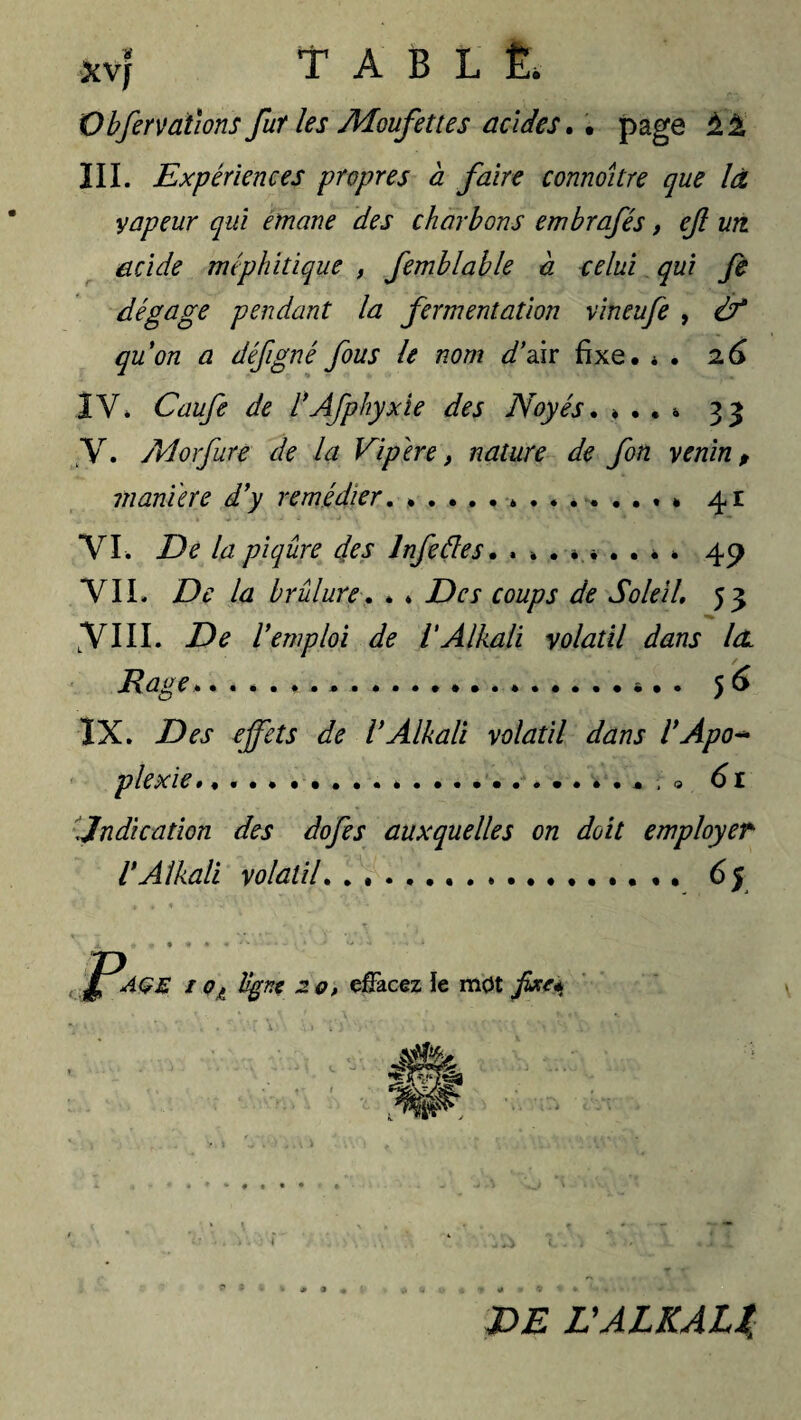 xvj TABLE.
Obſervations ſur les Moufettes acides. . page 22
III. Expériences propres à faire connoître que la
vapeur qui émane des charbons embraſés, eſt un
acide méphitique, ſemblable à celui qui ſe
dégage pendant la fermentation vineuſe, &
qu'on a déſigné ſous le nom d'air fixe. . . 26
IV. Cauſe de l'Aſphyxie des Noyés. . . . . 33
V. Morſure de la Vipère, nature de ſon venin,
manière d'y remédier. . . . . . . . . . . . . . 41
VI. De la piqûre des Inſectes. . . . . . . . . . 49
VII. De la brûlure. . . Des coups de Soleil. 53
VIII. De l'emploi de l'Alkali volatil dans la
Rage. . . . . . . . . . . . . . . . . . . . . . . . . . 56
IX. Des effets de l'Alkali volatil dans l'Apo-
plexie. . . . . . . . . . . . . . . . . . . . . . . . . 61
Indication des doſes auxquelles on doit employer
l'Alkali volatil. . . . . . . . . . . . . . . . . . 65
PAGE 10, ligne 20, effacez le mot fixe.
DE L'ALKALI